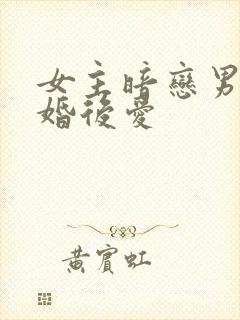 女主暗戀男
婚後愛
黃賓虹